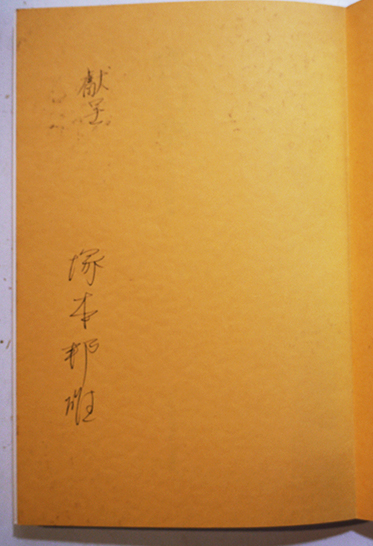 献呈
塚本邦雄